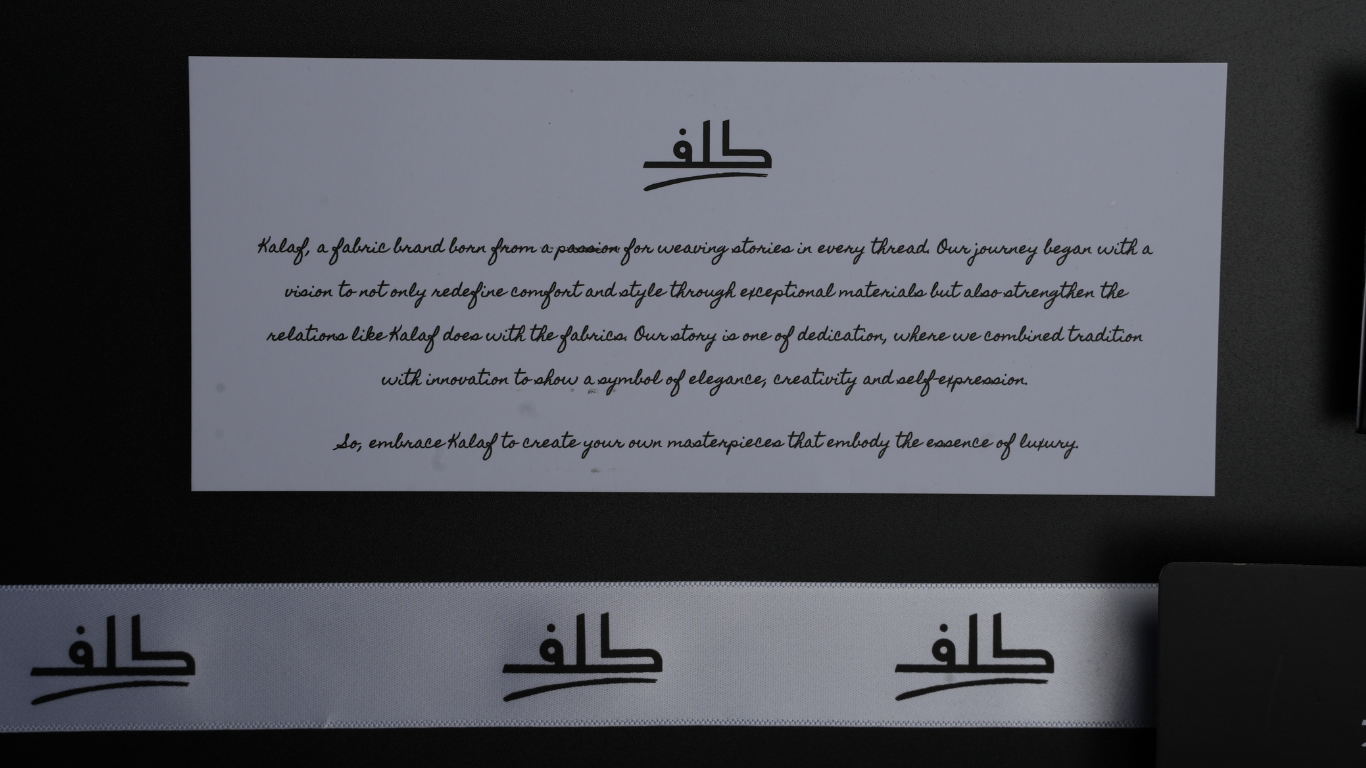 كلف
Kalaf, a fabric brand born from a passion for weaving stories in every thread. Our journey began with a
vision to not only redefine comfort and style through exceptional materials but also strengthen the
relations like Kalaf does with the fabrics. Our story is one of dedication, where we combined tradition
with innovation to show a symbol of elegance, creativity and self-expression.
So, embrace Kalaf to create your own masterpieces that embody the essence of luxury.
كلف كلف كلف